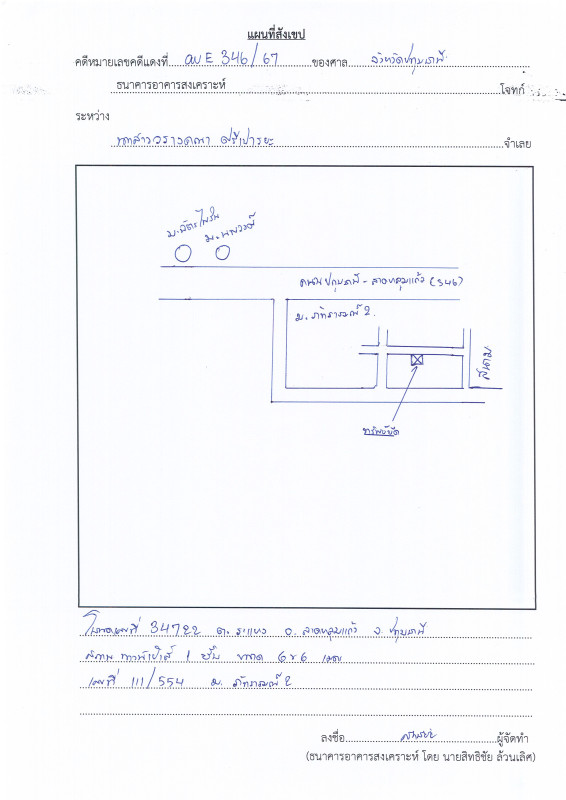 แผนที่สังเขป
คดีหมายเลขคดีแดงที่ ผบE 346/67 ของศาล จังหวัดปทุมธานี
ธนาคารอาคารสงเคราะห์ โจทก์
ระหว่าง
จำเลย
ถนน ปทุมธานี - ลาดหลุมแก้ว (346)
ม. ภัทรารมณ์ 2
สนาม
ทรัพย์ยึด
โฉนดเลขที่ 34722 ต. ระแหง อ. ลาดหลุมแก้ว จ. ปทุมธานี
ทาวน์เฮ้าส์ 1 ชั้น ขนาด 6x6 เมตร
เลขที่ 111/554 ม. ภัทรารมณ์ 2
ลงชื่อ ผู้จัดทำ
(ธนาคารอาคารสงเคราะห์ โดย นายสิทธิชัย ล้วนเลิศ)